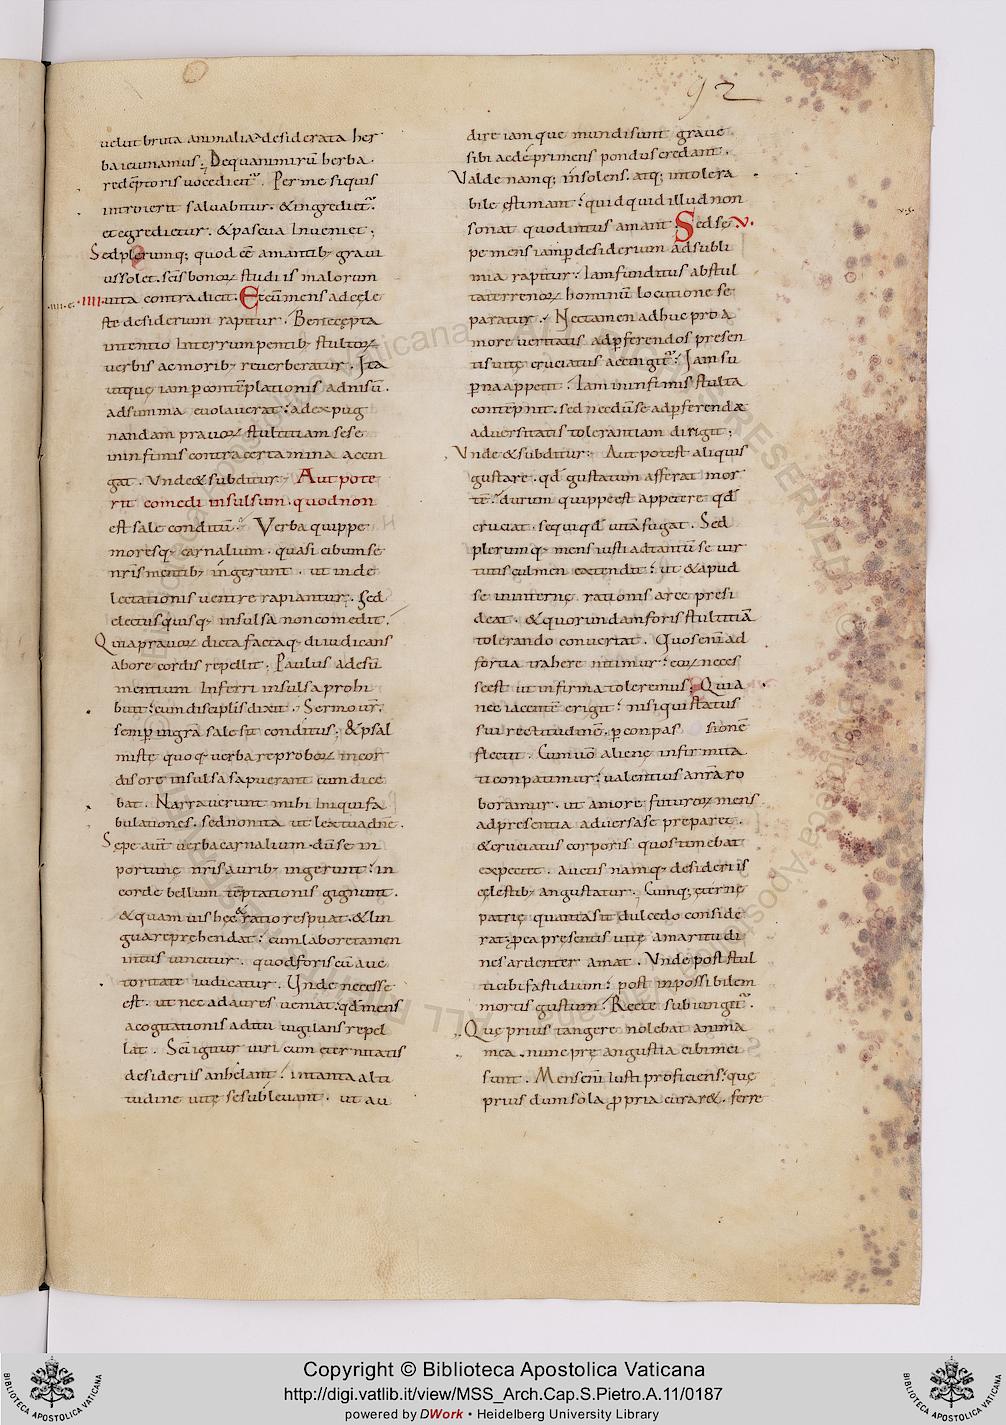 92
uelut bruta animalia desiderata her
ba ieiunamus. De qua nimirū herba.
redēptoris uoce dicitᷣ. Per me si quis
introierit saluabitur. & ingredietᷣ.
et egredietur. & pascua inueniet;
Sed plerumq; quod eē amantib; graui
us solet. scīs bonoꝝ studiis malorum
.IIII. uita contradicit. Etenī mens ad cęle
ste desiderium rapitur. Bene cępta
intentio interrumpentib; stultoꝝ
uerbis ac morib; reuerberatur. Ita
utque iam ꝑ contēplationis adnisū.
ad summa euolauerat: ad expug
nandam prauoꝝ stultitiam sese
in infimis contra certamina accin
gat. Vnde & subditur. Aut pote
rit comedi insulsum. quod non
est sale conditū. Verba quippe
moresq; carnalium. quasi cibum se
nrīs mentib; ingerunt. ut in de
lectationis uentre rapiantur. Sed
electus quisq; insulsa non comedit.
Quia prauoꝝ dicta factaq; diiudicans
ab ore cordis repellit. Paulus ad esū
mentium inferri insulsa prohi
buit: cum discipulis dixit. Sermo ur̄.
semꝑ in grā sale sit conditus; & psal
mistę quoq; uerba reproboꝝ in cor
dis ore insulsa sapuerant cum dice
bat. Narrauerunt mihi iniqui fa
bulationes. sed non ita ut lex tua dnē.
Sępe aut̄ uerba carnalium. dū se in
portunę nrīs aurib; ingerunt: in
corde bellum tēptationis gignunt.
& quamuis hęc & ratio respuat. & lin
gua reprehendat: cum labore tamen
intus uincitur. quod foris cū auc
toritate iudicatur. Unde necesse
est. ut nec ad aures ueniat: qd̄ mens
a cogitationis aditu uigilans repel
lat. Scī igitur uiri cum ęternitatis
desideriis anhelant: in tanta alti
tudine uitę se subleuant. ut au
dire iam que mundi sunt graue
sibi ac dep̄rimens pondus credant.
Valde namq; insolens. atq; intolera
bile ęstimant: quidquid illud non
sonat quod intus amant. Sed sę .V.
pe mens iam ꝑ desiderium ad subli
mia rapitur. Iam funditus abstul
ta terrenoꝝ hominū locutione se
paratur. Nec tamen adhuc pro a
more ueritatis ad ꝑferendos presen
tis uitę cruciatus accingitᷣ: Iam su
ꝑna appetit: Iam in infimis stulta
contēpnit. sed necdū se ad ꝑferendę
aduersitatis tolerantiam dirigit;
Vnde & subditur: Aut potest aliquis
gustare. qd̄ gustatum afferat mor
tē: durum quippe est appetere qd̄
cruciat. sequi qd̄ uitā fugat. Sed
plerumq; mens iusti ad tantū se uir
tutis culmen extendit: ut & apud
se in internę rationis arce presi
deat. & quorundam foris stultitiā
tolerando conuertat. Quos enī ad
fortia trahere nitimur: eoꝝ neces
se est ut infirma toleremus; Quia
nec iacentē erigit: nisi qui status
sui rectitudinē. ꝑ conpassionē
flectit. Cum uō alienę infirmita
ti conpatimur: ualentius a nrā ro
boramur. ut amore futuroꝝ mens
ad presentia aduersa se preparet.
& cruciatus corporis quos timebat
expectet. Auctis namq; desideriis
cęlestib; angustatur. Cumq; ęternę
patrię quanta sit dulcedo conside
rat: ꝓ ea presentis uitę amaritudi
nes ardenter amat. Vnde post stul
ti cibi fastidium: post inpossibilem
mortis gustum: Recte subiungitᷣ.
Quę prius tangere nolebat anima
mea. nunc pre angustia cibi mei
sunt. Mens enī iusti proficiens: quę
prius dum sola ꝓpria curar&. ferre
Copyright © Biblioteca Apostolica Vaticana
http://digi.vatlib.it/view/MSS_Arch.Cap.S.Pietro.A.11/0187
powered by DWork • Heidelberg University Library
BIBLIOTECA APOSTOLICA VATICANA
BIBLIOTECA APOSTOLICA VATICANA